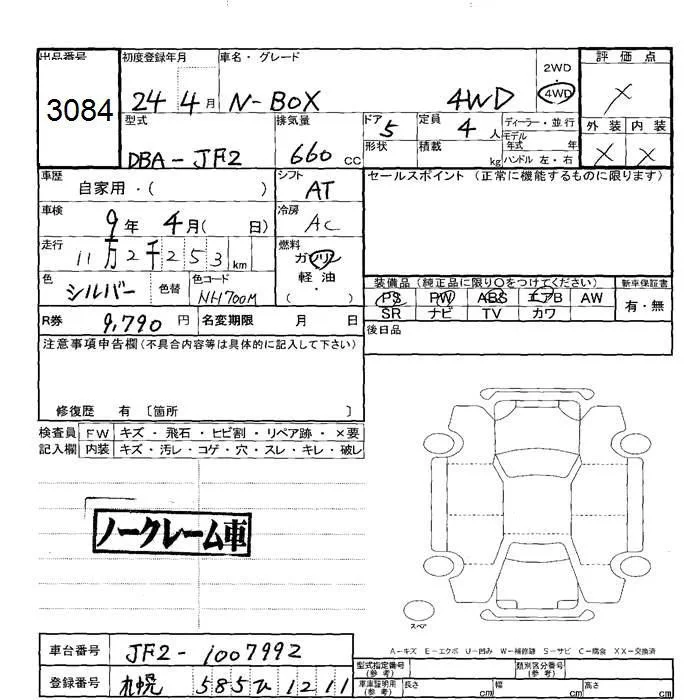 出品番号 初度登録年月 車名・グレード 2WD 評価点
3084 24 4月 N-BOX 4WD 4WD X
型式 排気量 ドア 5 定員 4人 ディーラー・並行 外装 内装
DBA-JF2 660cc 形状 積載 kg モデル年式 年 X X
ハンドル 左・右
車歴 シフト セールスポイント(正常に機能するものに限ります)
自家用・( ) AT
車検 冷房
9年 4月( 日) AC
走行 燃料
11万2千253km ガソリン
色 色替 色コード 軽油 装備品(純正品に限り○をつけてください) 新車保証書
シルバー NH700M ( ) PS PW ABS エアB AW 有・無
SR ナビ TV カワ
R券 9,790円 名変期限 月 日 後日品
注意事項申告欄(不具合内容等は具体的に記入して下さい)
修復歴 有 〔箇所 〕
検査員 FW キズ・飛石・ヒビ割・リペア跡・×要
記入欄 内装 キズ・汚レ・コゲ・穴・スレ・キレ・破レ
ノークレーム車
スペア
A-キズ E-エクボ U-凹み W-補修跡 S-サビ C-腐食 XX-交換済
車台番号 JF2-1007992 型式指定番号(参考) 類別区分番号(参考)
登録番号 札幌 585ひ1211 車庫証明用(参考) 長さ cm 幅 cm 高さ cm